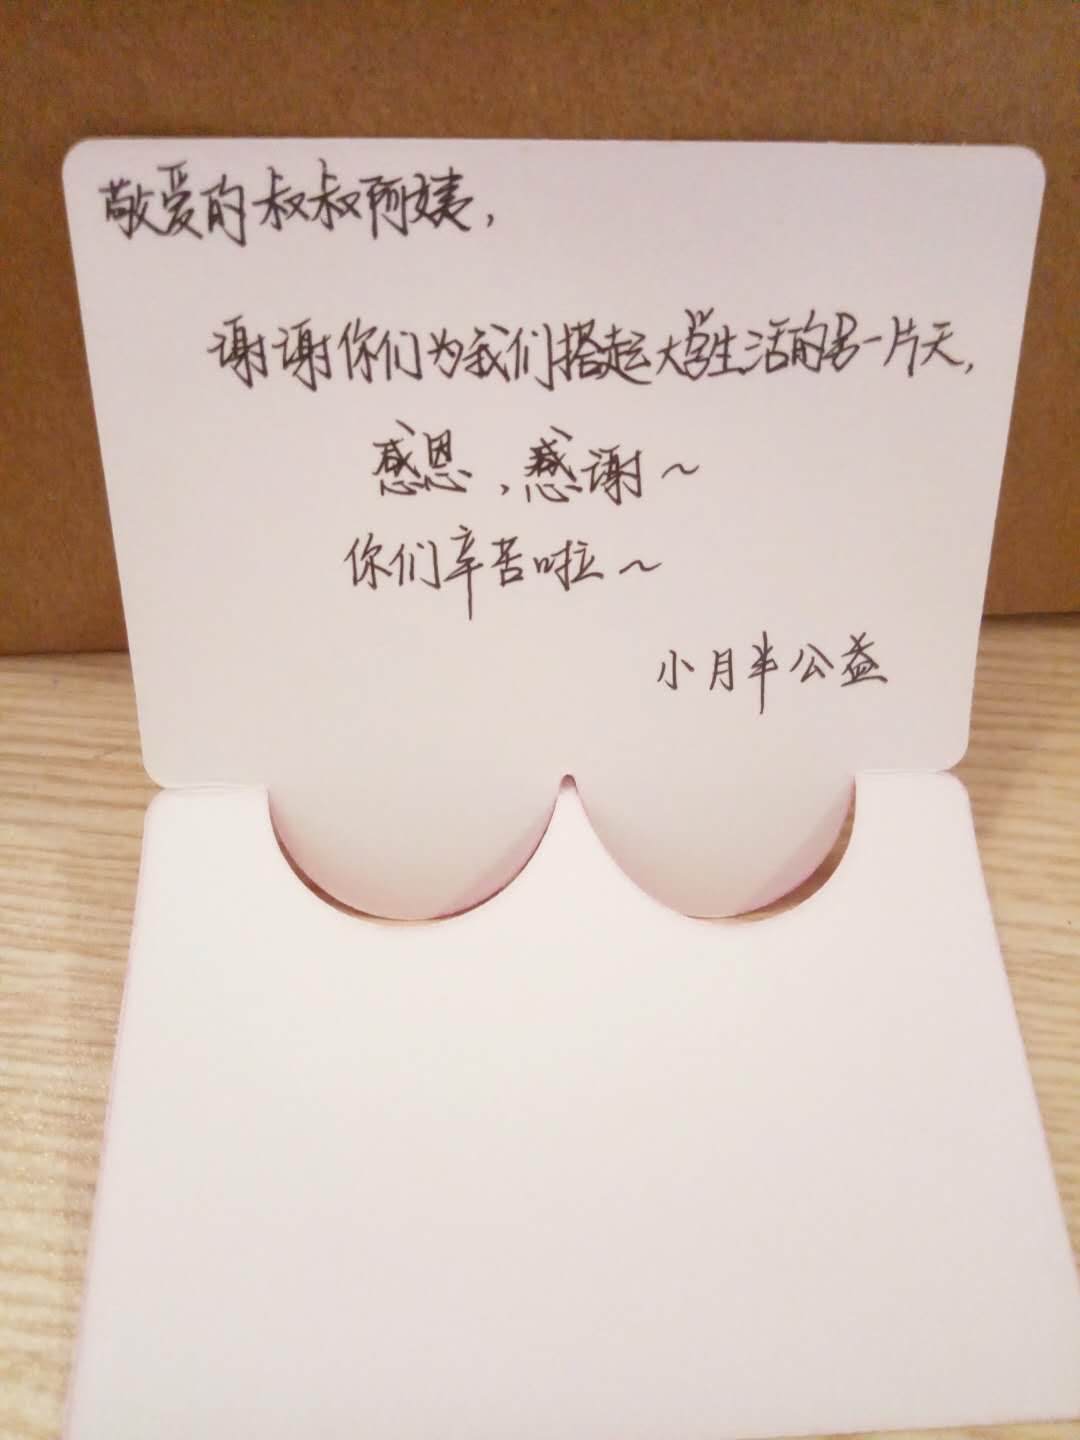 敬爱的叔叔阿姨，
谢谢你们为我们搭起大学生活的另一片天，
感恩，感谢～
你们辛苦啦～
小月半公益